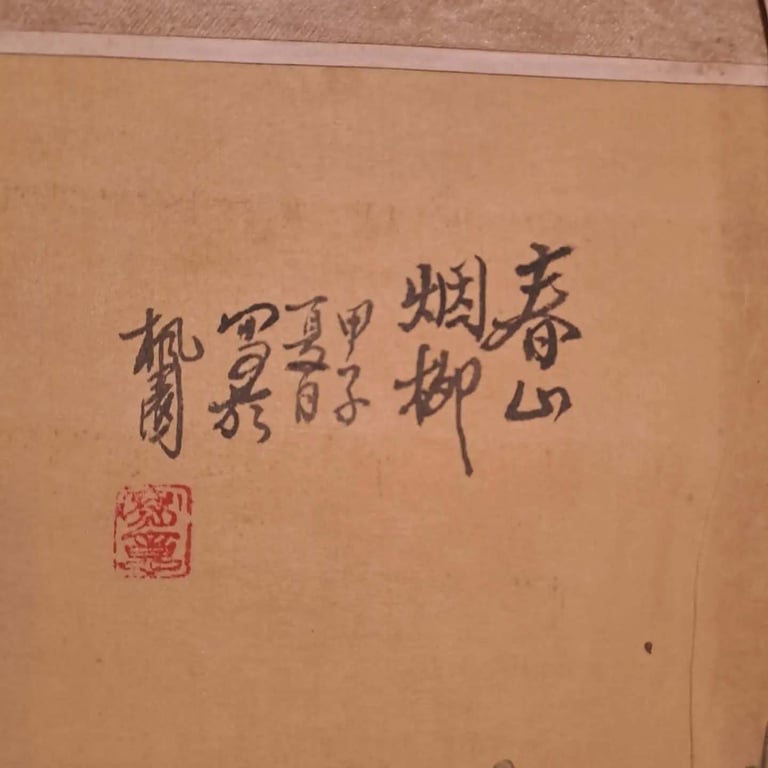 春山
烟柳
甲子
夏日
写於
楓園